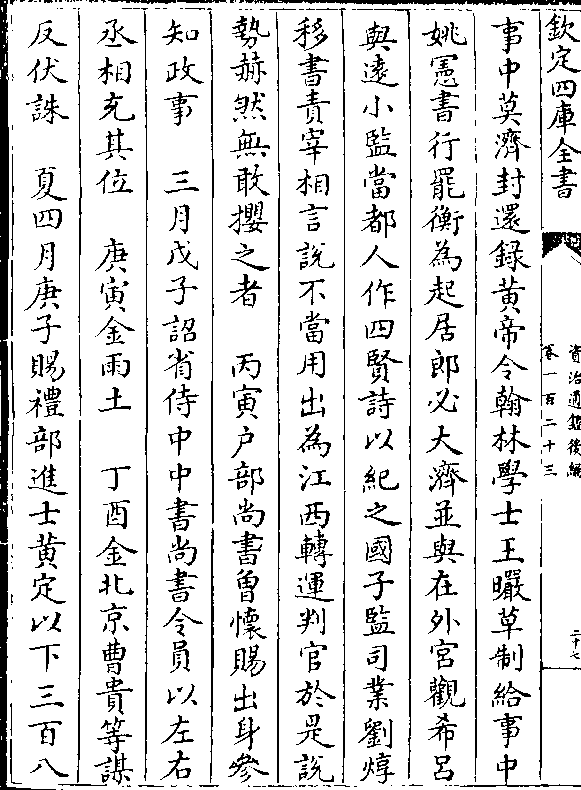 欽定四庫全書
資治通鑑後編
卷一百二十三
二十七
事中莫濟封還録黄帝令翰林學士王曮草制給事中
姚憲書行罷衡為起居郎必大濟並與在外宫觀希吕
與逺小監當都人作四賢詩以紀之國子監司業劉焞
移書責宰相言說不當用出為江西轉運判官於是說
勢赫然無敢攖之者　丙寅户部尚書曾懐賜出身參
知政事　三月戊子詔省侍中中書尚書令員以左右
丞相充其位　庚寅金雨土　丁酉金北京曹貴等謀
反伏誅　夏四月庚子賜禮部進士黄定以下三百八